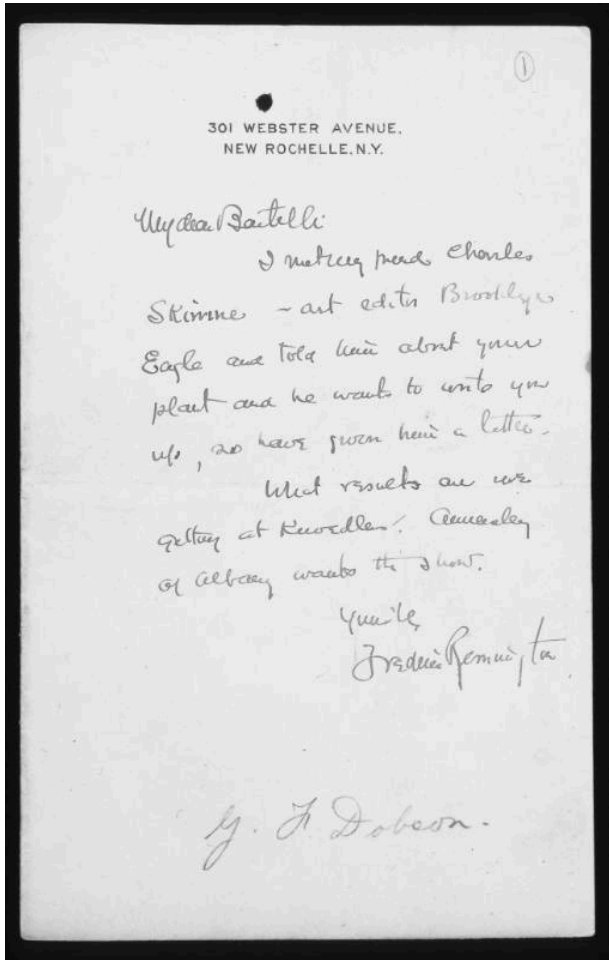 1
301 WEBSTER AVENUE.
NEW ROCHELLE, N.Y.
My dear Bertelli
I met my friend Charles
Skinner - art editor Brooklyn
Eagle and told him about your
plant and he wants to write you
up, so have given him a letter.
What results are we
getting at Knoedler? Annesley
of Albany wants the show.
Yours
Frederic Remington
G. F. Dobson.